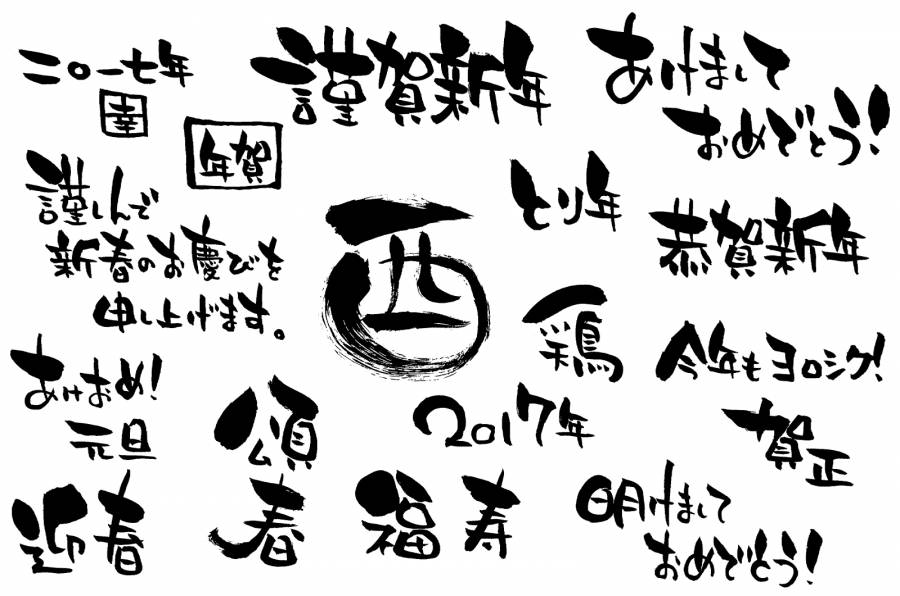 二〇一七年
幸
年賀
謹賀新年
あけまして
おめでとう!
謹しんで
新春のお慶びを
申し上げます。
酉
とり年
恭賀新年
鶏
今年もヨロシク!
あけおめ!
元旦
頌
春
2017年
賀
正
迎春
福寿
明けまして
おめでとう!